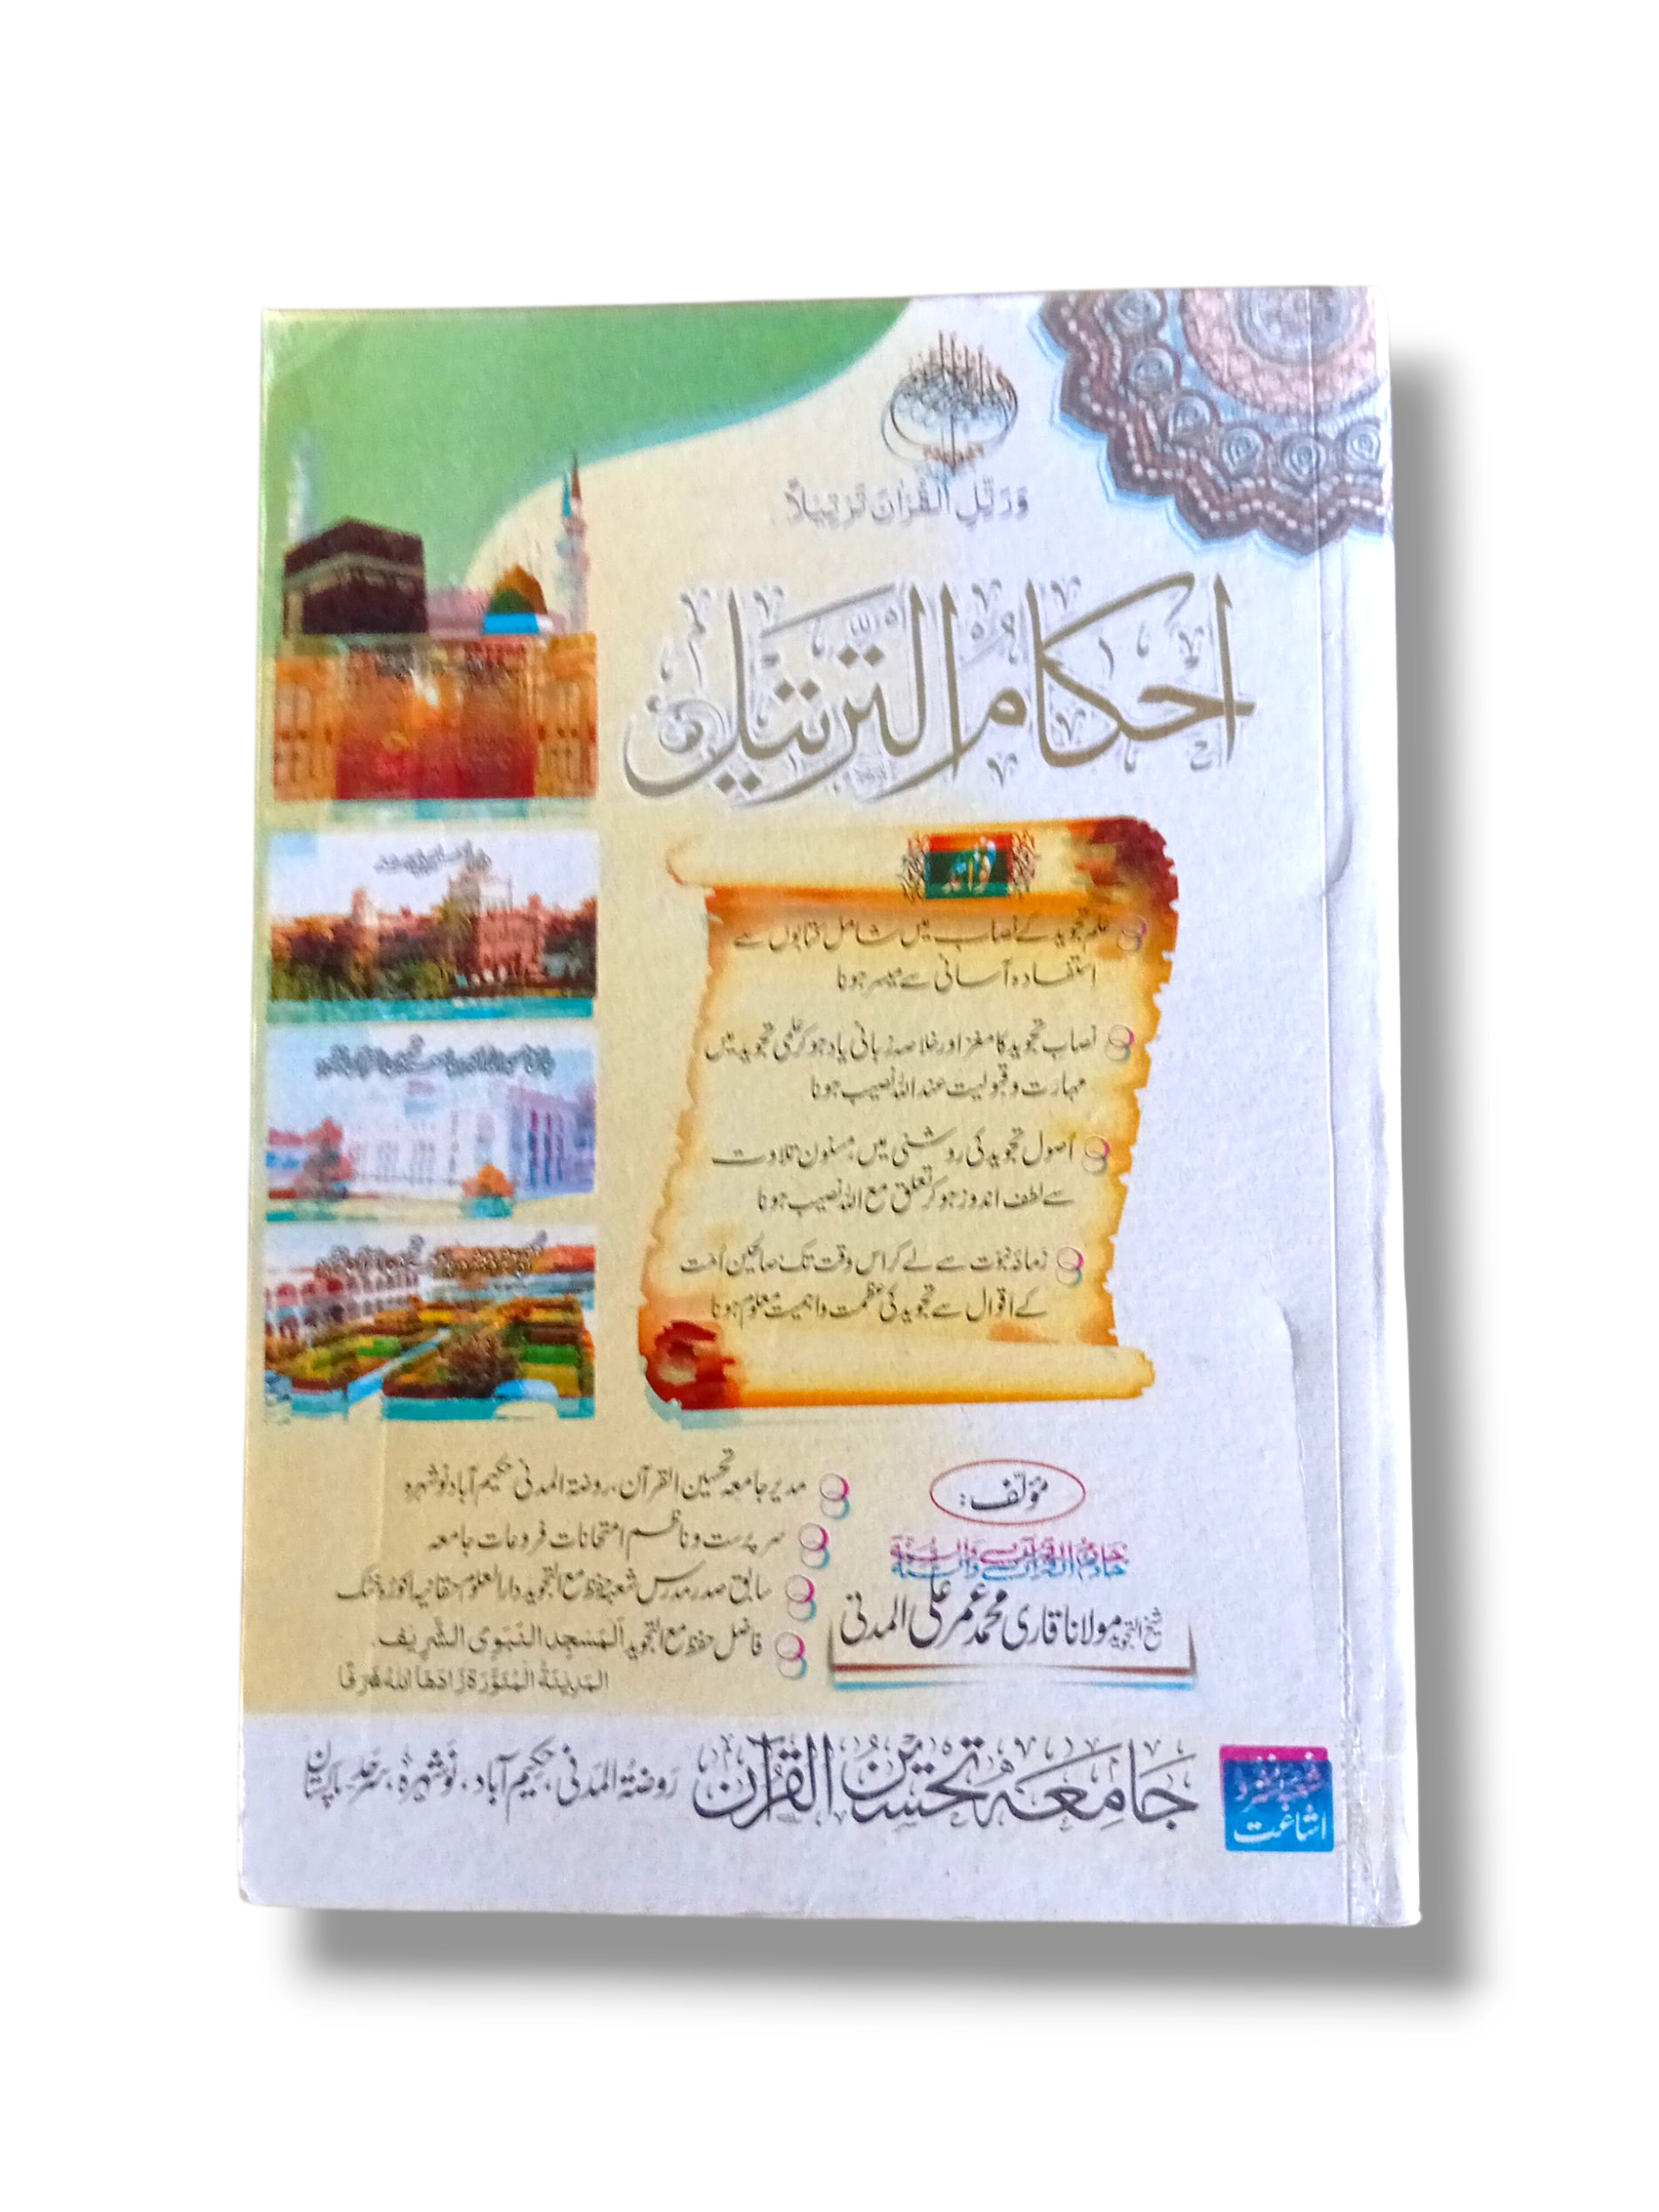 وَرَتِّلِ الْقُرْاٰنَ تَرْتِيْلًا
احکام الترتیل
فوائد
علم تجوید کے نصاب میں شامل کتابوں سے
استفادہ آسانی سے میسر ہونا
نصاب تجوید کا مغز اور خلاصہ زبانی یاد ہو کر علمی تجوید میں
مہارت و قبولیت عند اللہ نصیب ہونا
اصول تجوید کی روشنی میں مسنون تلاوت
سے لطف اندوز ہو کر تعلق مع اللہ نصیب ہونا
زمانۂ نبوّت سے لے کر اس وقت تک صالحین اُمت
کے اقوال سے تجوید کی عظمت و اہمیت معلوم ہونا
مؤلف:
خادم القرآن والسنة
شیخ التجوید مولانا قاری محمد عمر علی المدنی
مدیر جامعہ تحسین القرآن، روضۃ المدنی حکیم آباد نوشہرہ
سرپرست و ناظم امتحانات فروعات جامعہ
سابق صدر مدرس شعبہ حفظ مع التجوید دارالعلوم حقانیہ اکوڑہ خٹک
فاضل حفظ مع التجوید اَلْمَسْجِدِ النَّبَوِی الشَّرِیْف
الْمَدِیْنَةُ الْمُنَوَّرَة زَادَھَا اللهُ شَرَفًا
جامعہ تحسین القرآن روضۃ المدنی، حکیم آباد، نوشہرہ، سرحد، پاکستان
شعبہ نشر و
اشاعت